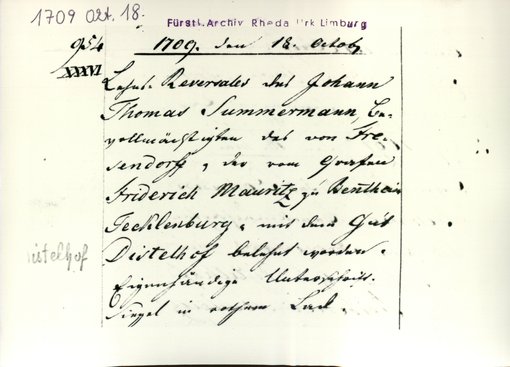 1709 Okt. 18.
Fürstl. Archiv Rheda Urk Limburg
954
1709. den 18. Octobr.
XXXVI
Lehns-Reversales des Johann
Thomas Summermann, Be-
vollmächtigten des von Fre-
sendorff, der vom Grafen
Friderich Mauritz zu Bentheim
Tecklenburg, mit dem Gut
Distelhof belehnt worden.
Eigenhändige Unterschrift.
Siegel in rothem Lack.
Distelhof